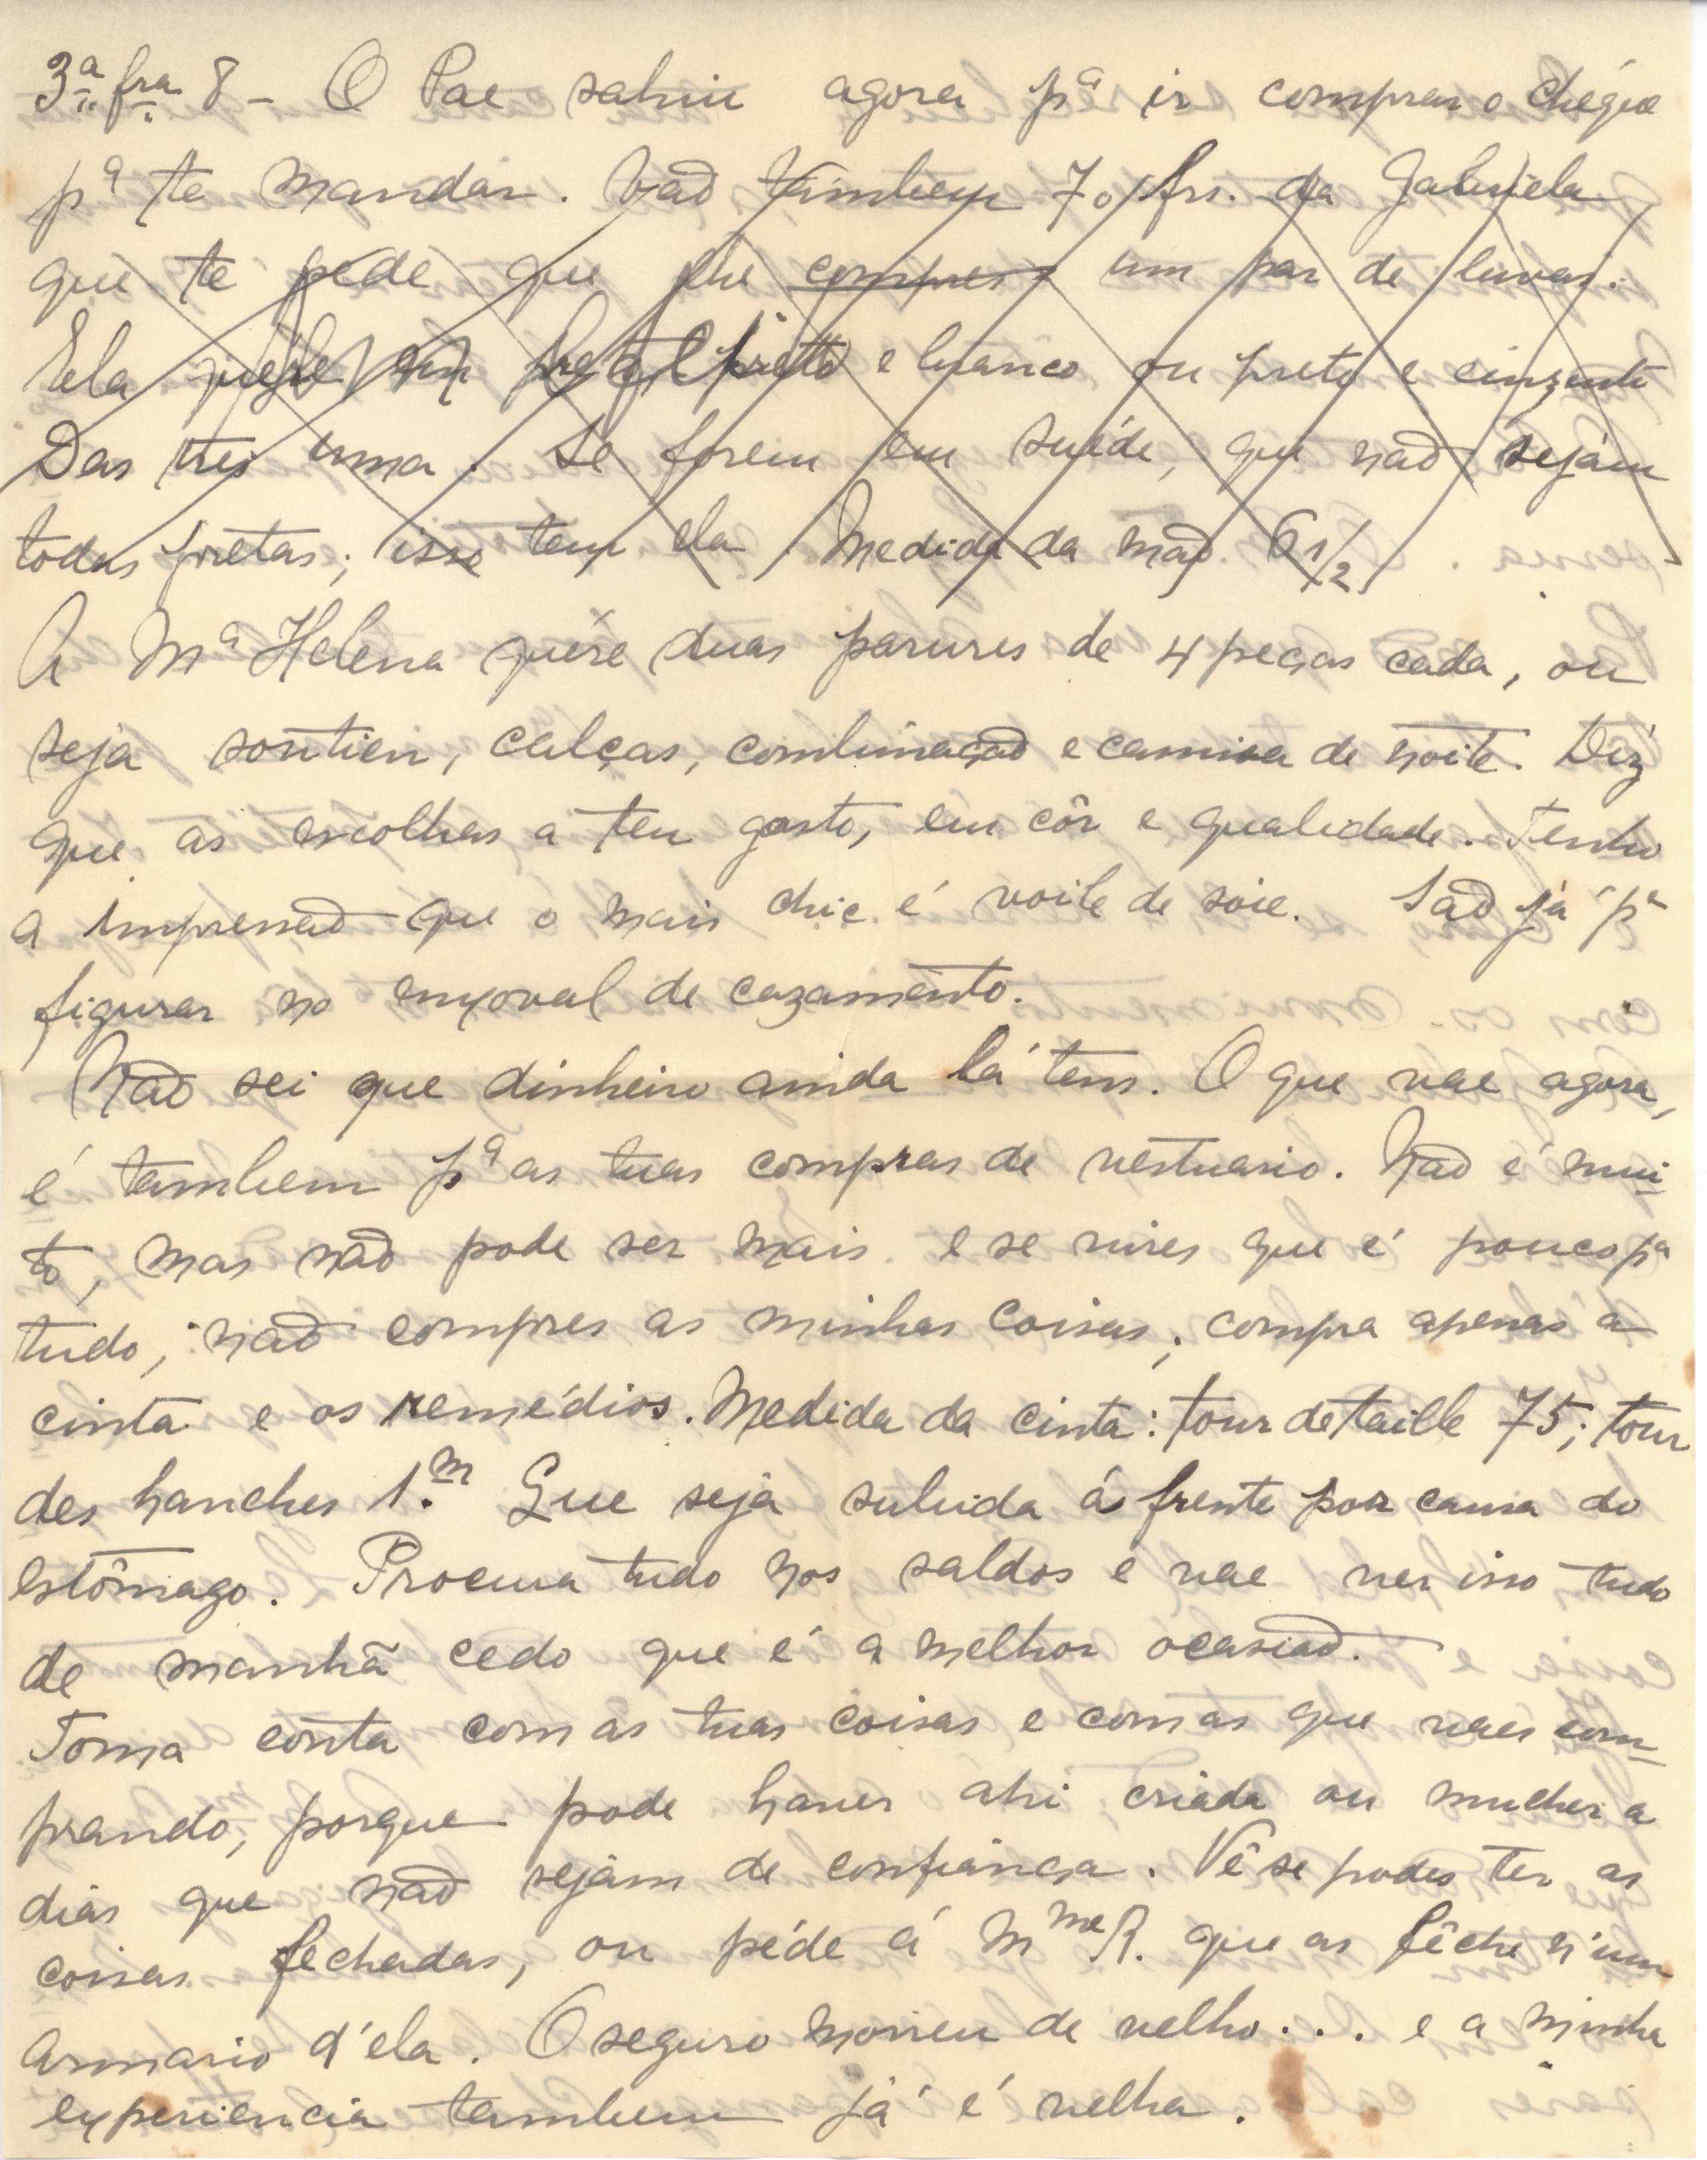 3ª fra 8 - O Pae sahiu agora pª ir comprar o chéque
pª te mandar. Vaõ tambem 70 frs. da Gabriela
que te péde que lhe compres um par de luvas.
Ela quere em preto e branco ou preto e cinzento
Das tres uma. Se forem em suéde, que naõ sejam
todas pretas; isso tem ela. Medida da maõ 6 1/2
A Mª Helena quére duas parures de 4 peças cada, ou
seja soutien, calças, combinaçaõ e camisa de noite. Diz
que as escolhas a teu gosto, em côr e qualidade. Tenho
a impressaõ que o mais chic é voile de soie. Saõ já pª
figurar no enxoval de cazamento.
Naõ sei que dinheiro ainda lá tens. O que vae agora,
é tambem pª as tuas compras de vestuario. Naõ é mui-
to, mas naõ pode ser mais e se vires que é pouco pª
tudo, naõ compres as minhas coisas; compra apenas a
cinta e os remédios. Medida da cinta: tour de taille 75; tour
des hanches 1.m Que seja subida á frente por causa do
estômago. Procura tudo nos saldos e vae ver isso tudo
de manhã cedo que é a melhor ocasiaõ.
Toma conta com as tuas coisas e com as que vaes com-
prando, porque pode haver ahi criada ou mulher a
dias que naõ sejam de confiança. Vê se podes ter as
coisas fechadas, ou péde á Mme R. que as fêche n'um
armario d'ela. O seguro morreu de velho... e a minha
experiencia tambem já é velha.